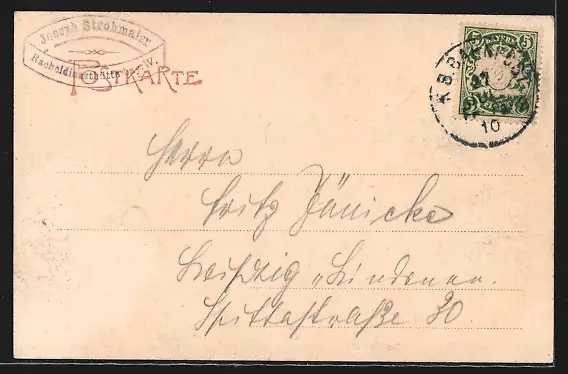 Joseph Strohmaier
Racheldiensthütte
POSTKARTE
5 BAYERN 5
27
10
Herrn
Fritz Jänicke
Leipzig-Lindenau.
Spittastraße 30